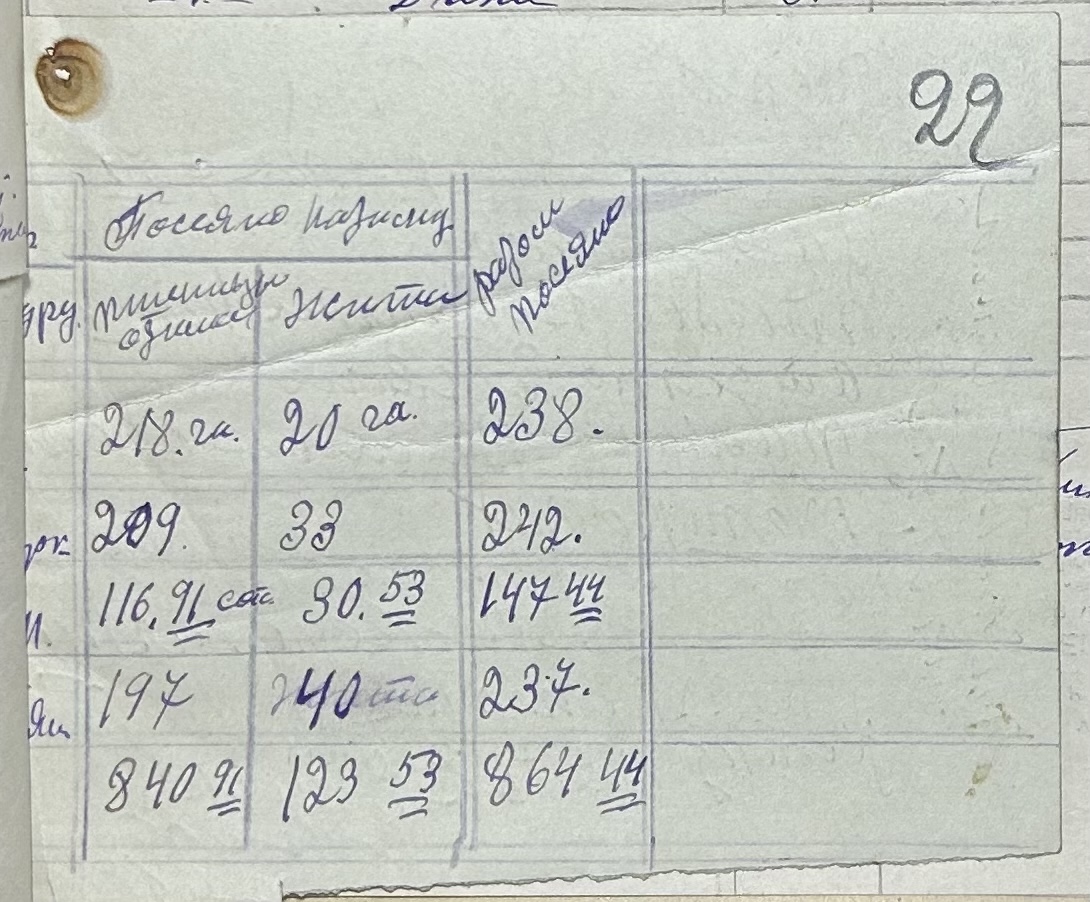 22
Посеяно на зиму
разом
посеяно
пшеницы
озимой
Жита
218. га. 20 га. 238.
209. 33 242.
116. 91 сот. 30. 53 147 44
197 40 237.
840 91 123 53 864 44